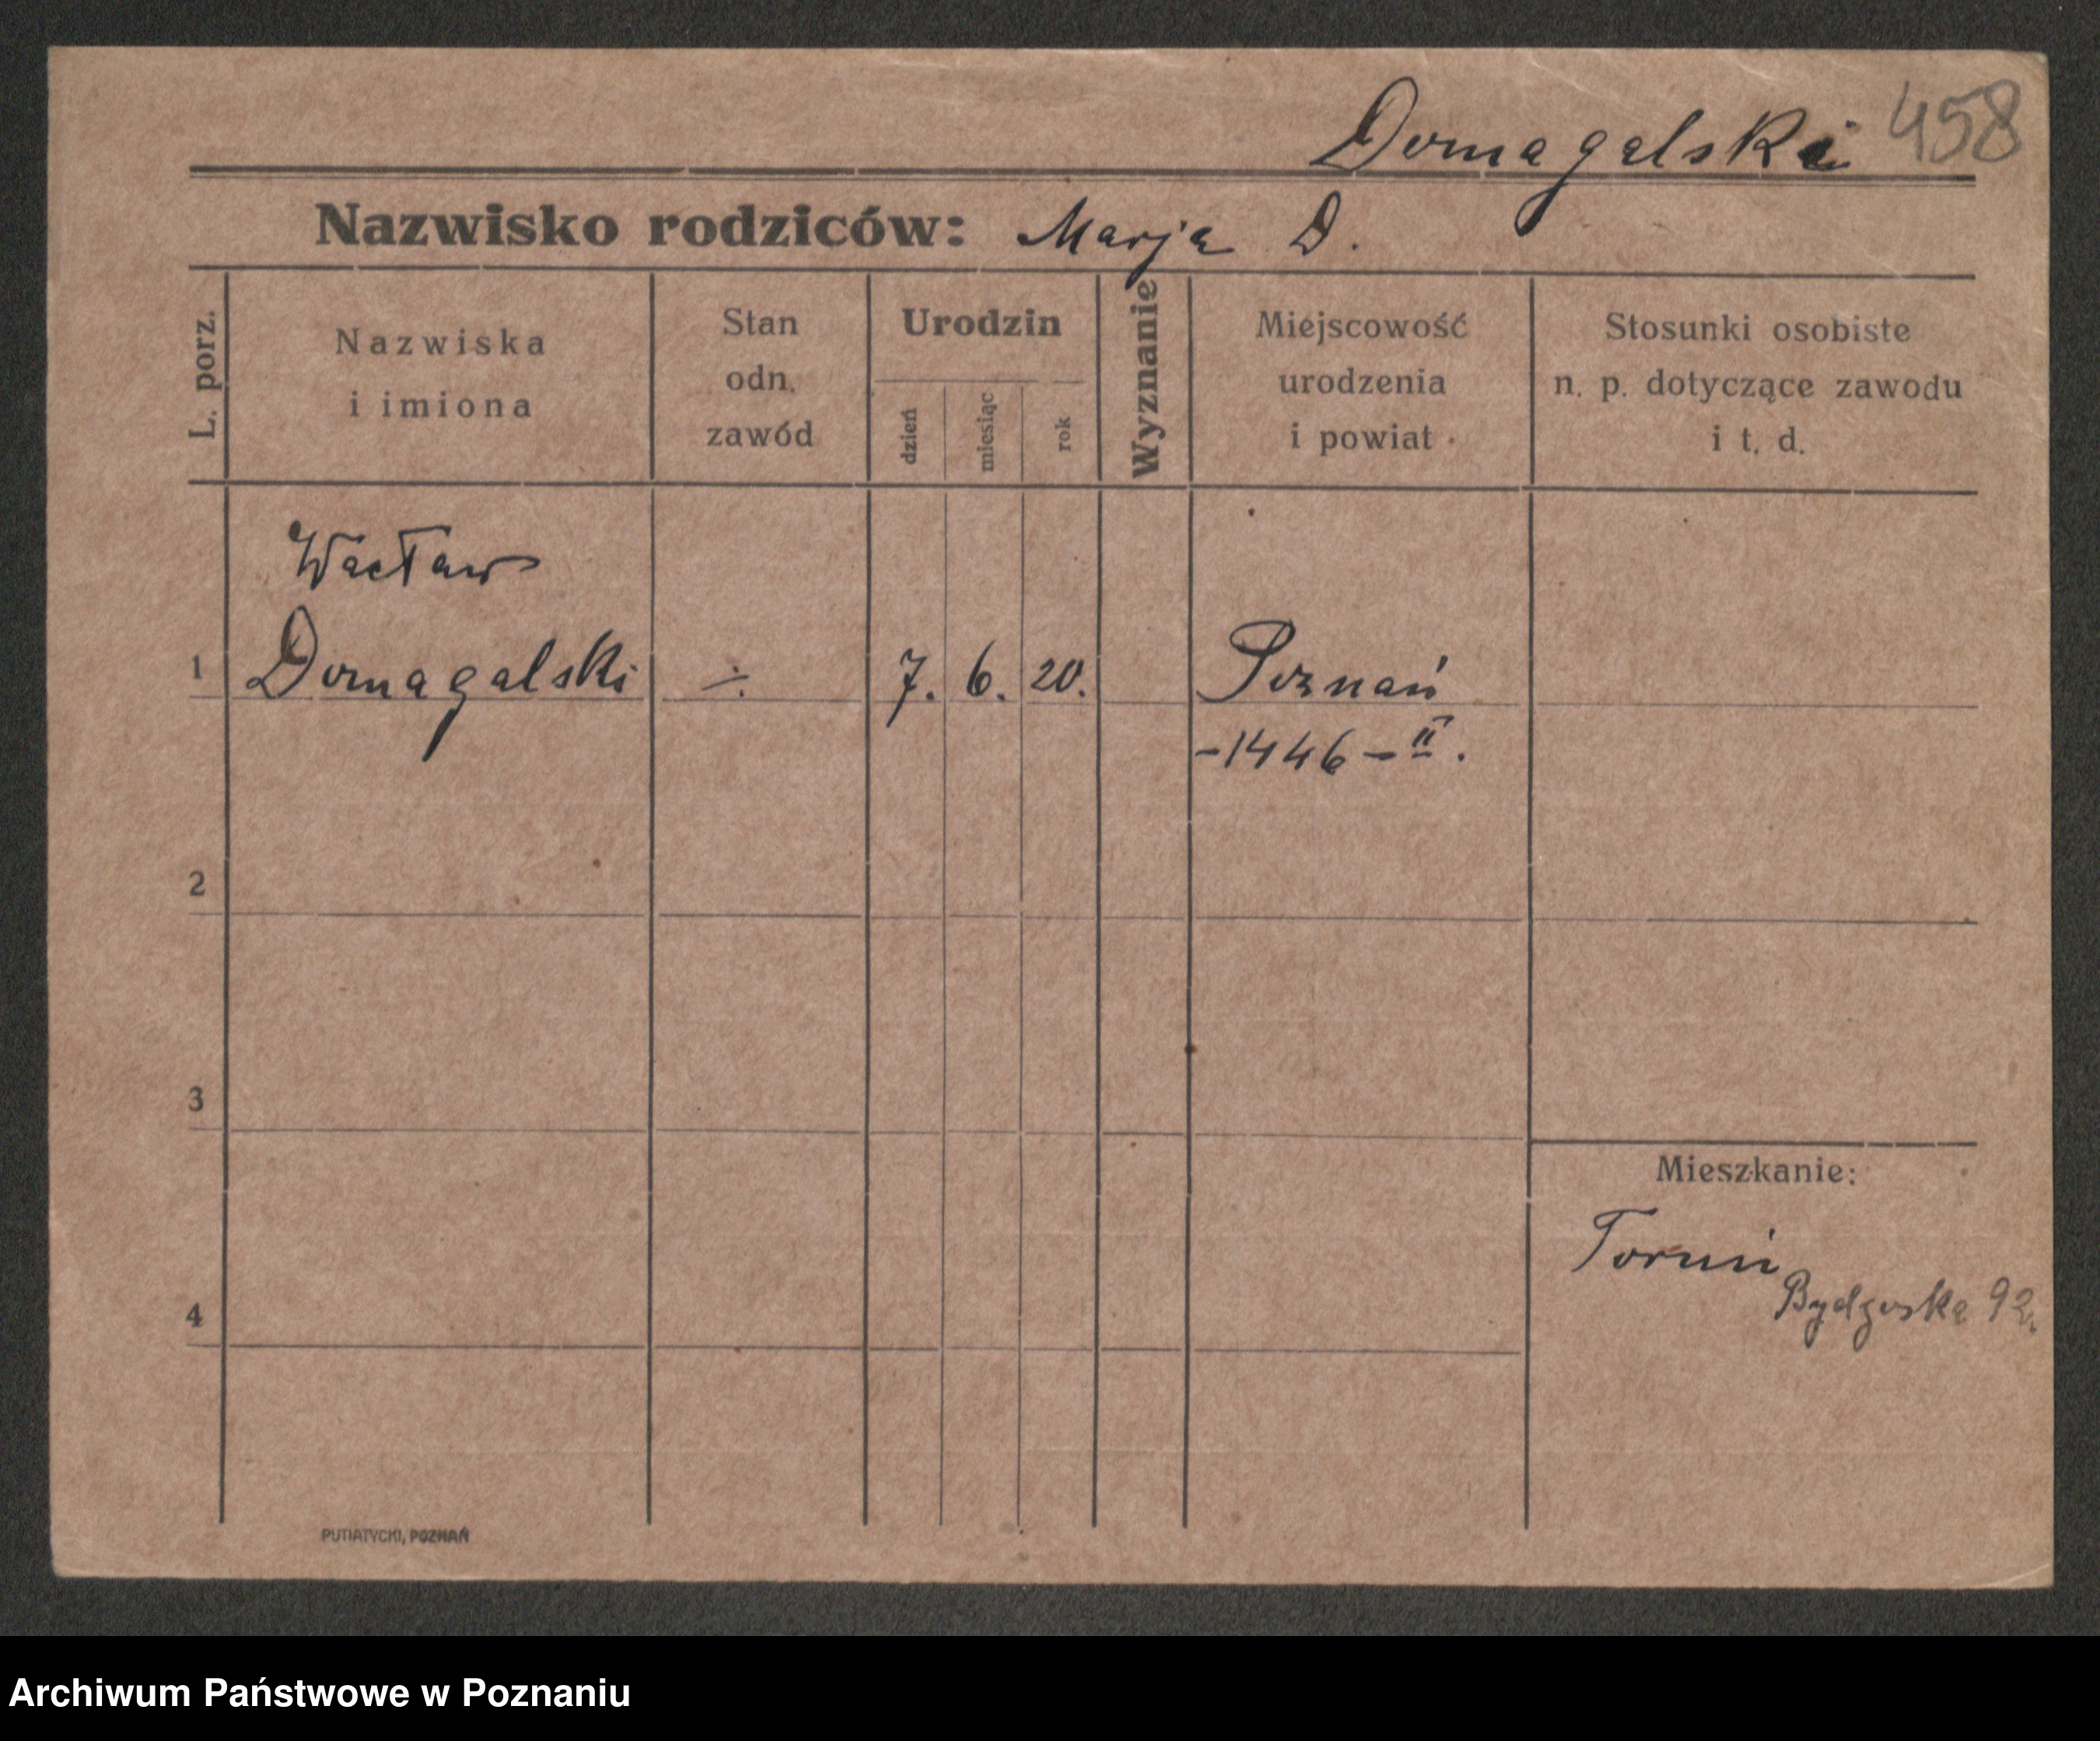 Domagalski 458
Nazwisko rodziców: Marja D.
L. porz.
Nazwiska
i imiona
Stan
odn.
zawód
Urodzin
dzień
miesiąc
rok
Wyznanie
Miejscowość
urodzenia
i powiat
Stosunki osobiste
n. p. dotyczące zawodu
i t. d.
Wacław
1 Domagalski ÷ 7. 6. 20. Poznań
-1446-II.
2
3
Mieszkanie:
Toruń
Bydgoska 92.
4
PUTIATYCKI, POZNAŃ
Archiwum Państwowe w Poznaniu